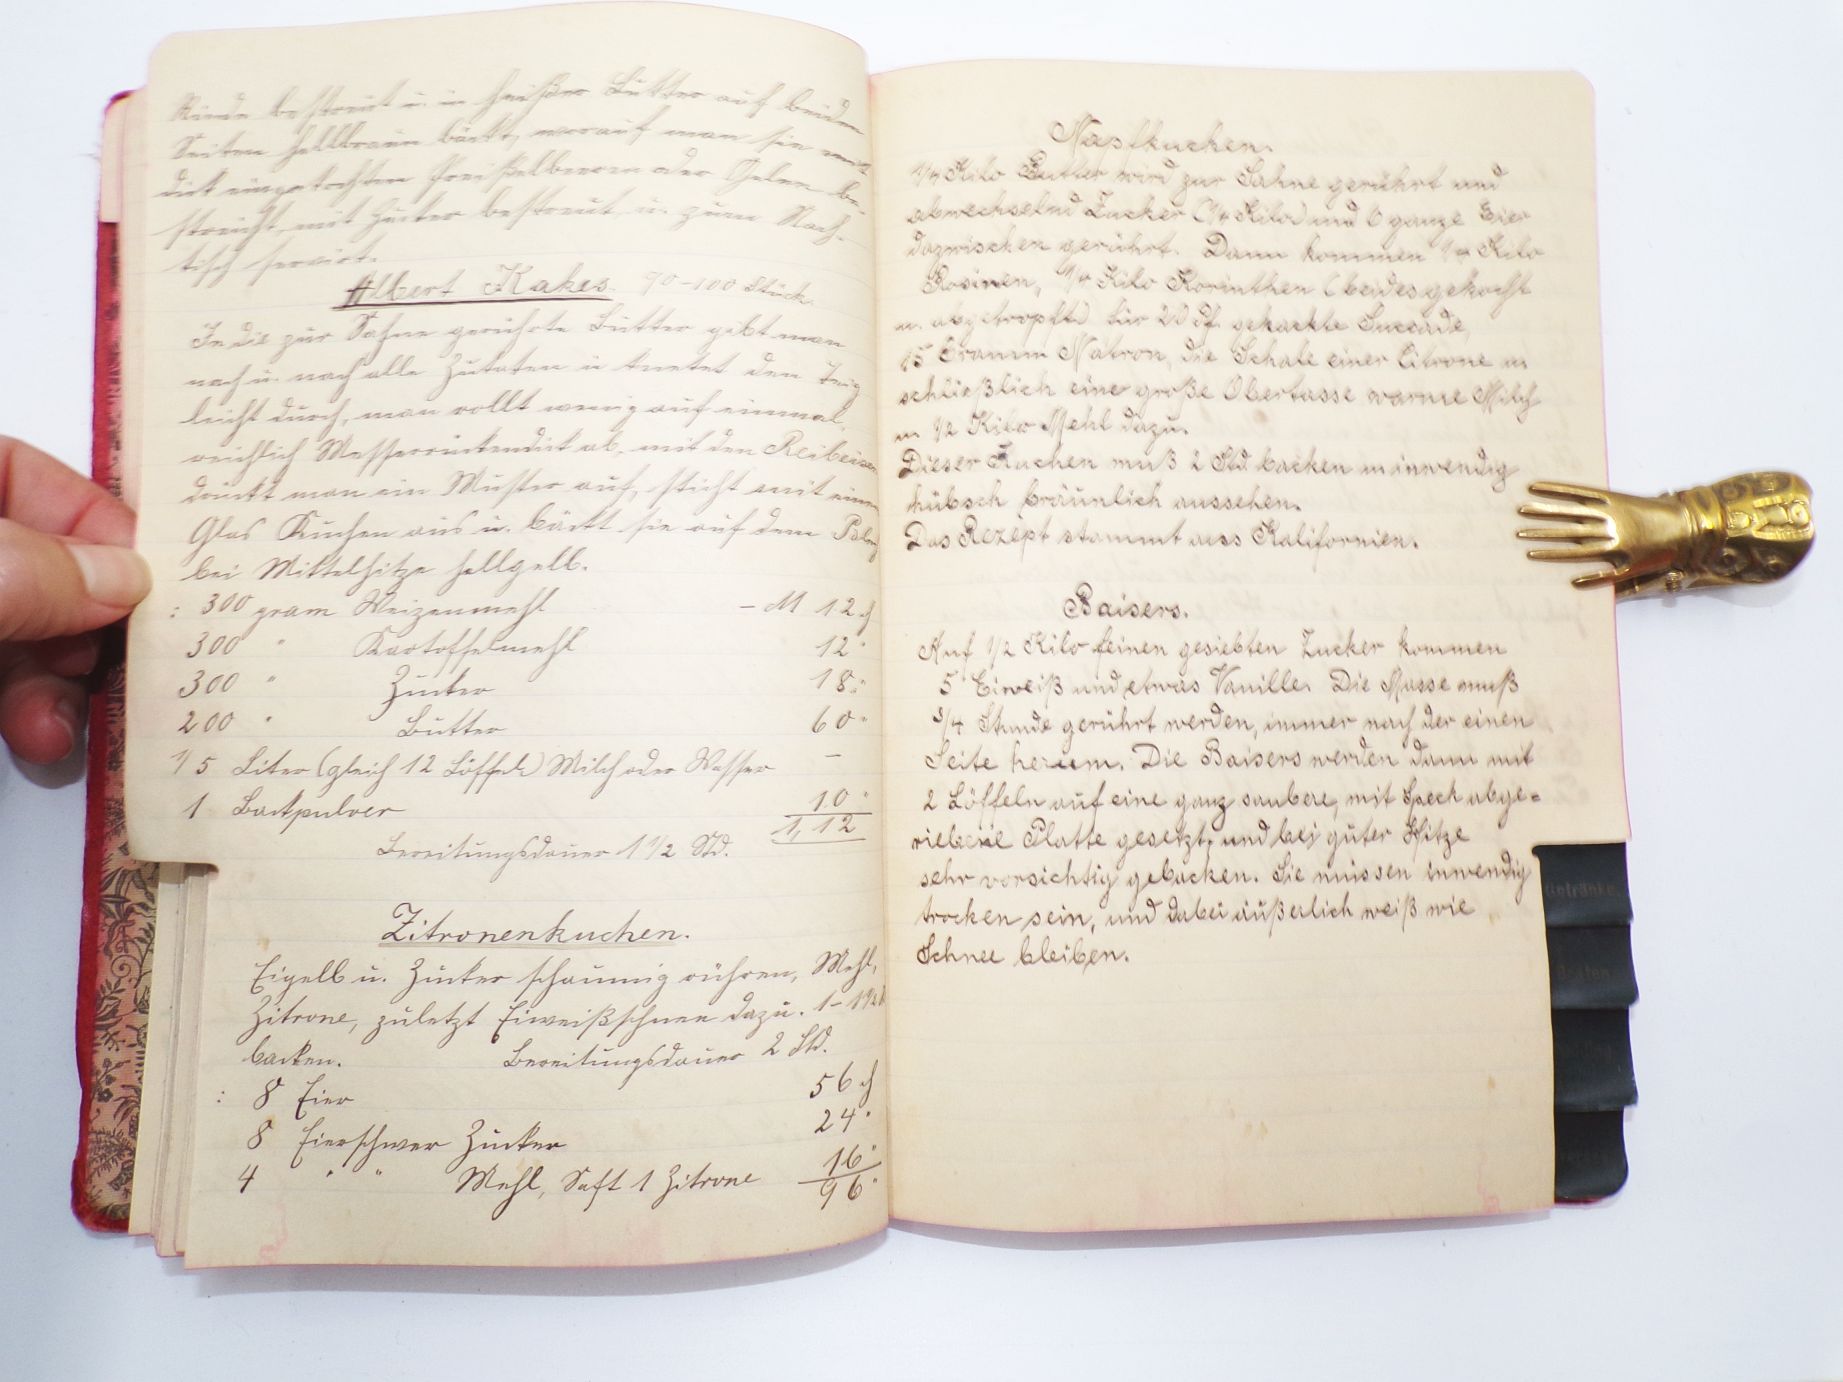 Rinde bestreut u. in heißer Butter auf beiden
Seiten hellbraun bäckt, worauf man sie mit
dick eingekochten Preißelbeeren oder Gelee be-
streicht, mit Zucker bestreut u. zum Nach-
tisch serviert.
Albert Kakes. 90-100 Stück.
In die zur Sahne gerührte Butter gibt man
nach u. nach alle Zutaten u knetet den Teig
leicht durch, man rollt wenig auf einmal,
reichlich Messerrückendick ab, mit den Reibeisen
drückt man ein Muster auf, sticht mit einem
Glas Kuchen aus u. bäckt sie auf dem Blech
bei Mittelhitze hellgelb.
: 300 gram Weizenmehl - M 12 ₰
300 " Kartoffelmehl 12 "
300 " Zucker 18 "
200 " Butter 60 "
1/5 Liter (gleich 12 Löffel) Milch oder Wasser -
1 Backpulver 10 "
1,12
Bereitungsdauer 1 1/2 Std.
Zitronenkuchen.
Eigelb u. Zucker schaumig rühren, Mehl,
Zitrone, zuletzt Eiweißschnee dazu. 1-1 1/2
backen. Bereitungsdauer 2 Std.
: 8 Eier 56 ₰
8 Eierschwer Zucker 24 "
4 " " Mehl, Saft 1 Zitrone 16 "
96 "
Napfkuchen.
1/4 Kilo Butter wird zur Sahne gerührt und
abwechselnd Zucker (1/4 Kilo) und 6 ganze Eier
dazwischen gerührt. Dann kommen 1/4 Kilo
Rosinen, 1/4 Kilo Korinthen (beides gekocht
u. abgetropft) für 20 Pf. gehackte Succade,
15 Gramm Natron, die Schale einer Citrone u
schließlich eine große Obertasse warme Milch
u. 1/2 Kilo Mehl dazu.
Dieser Kuchen muß 2 Std backen u inwendig
hübsch bräunlich aussehen.
Das Rezept stammt aus Kalifornien.
Baisers.
Auf 1/2 Kilo feinen gesiebten Zucker kommen
5 Eiweiß und etwas Vanille. Die Masse muß
3/4 Stunde gerührt werden, immer nach der einen
Seite herum. Die Baisers werden dann mit
2 Löffeln auf eine ganz saubere, mit Speck abge=
riebene Platte gesetzt, und bei guter Hitze
sehr vorsichtig gebacken. Sie müssen inwendig
trocken sein, und dabei äußerlich weiß wie
Schnee bleiben.
Getränke.